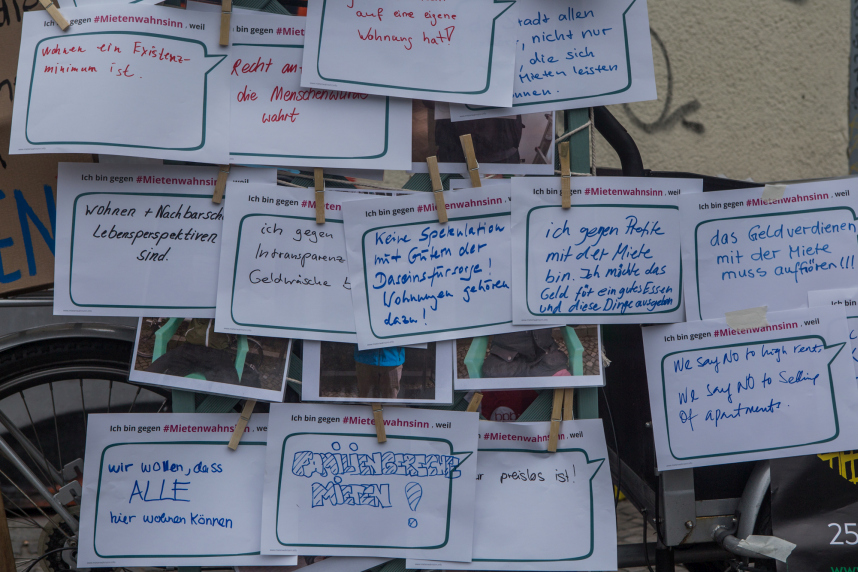 Ich bin gegen #Mietenwahnsinn, weil
wohnen ein Existenz-
minimum ist.
Ich bin gegen #Mie
Recht an
die Menschenwürde
wahrt
auf eine eigene
Wohnung hat!
tadt allen
, nicht nur
, die sich
Mieten leisten
nnen.
Ich bin gegen #Mietenwahnsinn, w
wohnen + Nachbarsch
Lebensperspektiven
sind.
Ich bin gegen #Mietenwahnsi
ich gegen
Intransparenz
Geldwäsche
Ich bin gegen #Mietenwahnsinn, weil
Keine Spekulation
mit Gütern der
Daseinsfürsorge!
Wohnungen gehören
dazu!
Ich bin gegen #Mietenwahnsinn, weil
ich gegen Profite
mit der Miete
bin. Ich möchte das
Geld für ein gutes Essen
und diese Dinge ausgeben
Ich bin gegen #Mietenwahnsinn, weil
das Geldverdienen
mit der Miete
muss aufhören!!!
Ich bin gegen #Mietenwahnsinn, weil
We say NO to high rent.
We say NO to selling
of apartments.
Ich bin
EN
Ich bin gegen #Mietenwahnsinn, weil
wir wollen, dass
ALLE
hier wohnen können
Ich bin gegen #Mietenwahnsinn, weil
MIETEN!
#Mietenwahnsinn, weil
ur preislos ist!
25